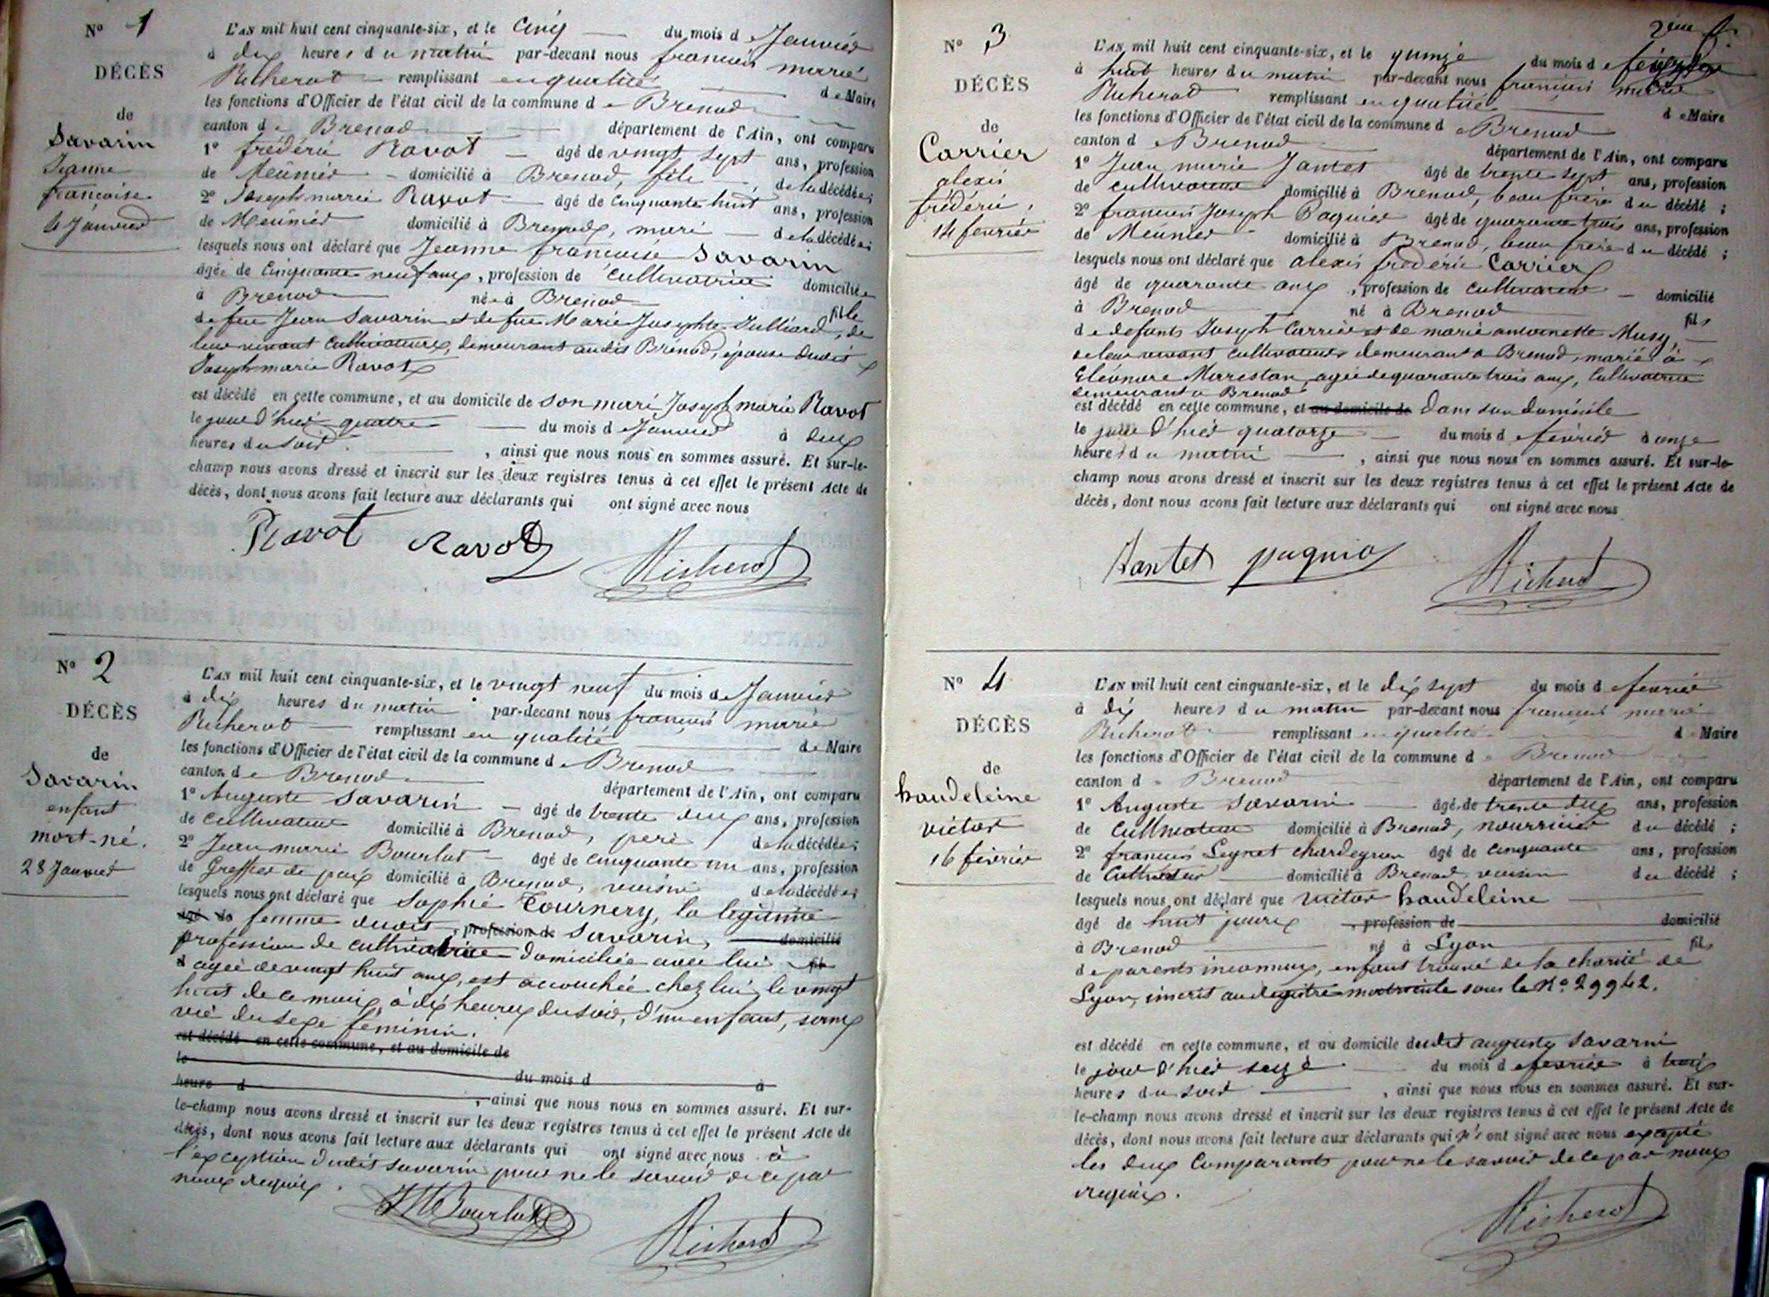 N° 1
DÉCÈS
de
Savarin
Jeanne
francoise
4 Janvier
L'AN mil huit cent cinquante-six, et le Cinq du mois d e Janvier
à dix heures d u matin par-devant nous francois marie
Richerot remplissant en qualité d e Maire
les fonctions d'Officier de l'état civil de la commune d e Brenod
canton d e Brenod département de l'Ain, ont comparu
1° frédéric Ravot âgé de vingt sept ans, profession
de Meûnier domicilié à Brenod, fils de la décédée ;
2° Joseph marie Ravot âgé de cinquante huit ans, profession
de Meûnier domicilié à Brenod, mari de la décédée ;
lesquels nous ont déclaré que Jeanne francoise Savarin
âgée de Cinquante neuf ans, profession de cultivatrice domiciliée
à Brenod née à Brenod fille
de feu Jean Savarin et de fue Marie Josephte Julliard, de
leur vivant Cultivateurs, demeurant audit Brénod, épouse dudit
Joseph marie Ravot
est décédé en cette commune, et au domicile de son mari Joseph marie Ravot
le jour d'hier quatre du mois d e Janvier à deux
heures du soir , ainsi que nous nous en sommes assuré. Et sur-le-
champ nous avons dressé et inscrit sur les deux registres tenus à cet effet le présent Acte de
décès, dont nous avons fait lecture aux déclarants qui ont signé avec nous
Ravot Ravot Richerot
N° 2
DÉCÈS
de
Savarin
enfant
mort-né.
28 Janvier
L'AN mil huit cent cinquante-six, et le vingt neuf du mois d e Janvier
à dix heures du matin par-devant nous francois marie
Richerot remplissant en qualité d e Maire
les fonctions d'Officier de l'état civil de la commune d e Brenod
canton d e Brenod département de l'Ain, ont comparu
1° Auguste Savarin âgé de trente deux ans, profession
de cultivateur domicilié à Brenod, père de la décédée ;
2° Jean marie Bourlot âgé de cinquante un ans, profession
de Greffier de paix domicilié à Brenod, voisin de la décédée ;
lesquels nous ont déclaré que Sophie Tournery, la légitime
âgé de femme dudit , profession de Savarin, domicilié
profession de cultivatrice domiciliée avec lui fils
d agée de vingt huit ans, est accouchée chez lui, le vingt
huit de ce mois, à dix heures du soir, d'un enfant, sans
vie du sexe féminin.
est décédé en cette commune, et au domicile de
le
heure d du mois d à
, ainsi que nous nous en sommes assuré. Et sur-
le-champ nous avons dressé et inscrit sur les deux registres tenus à cet effet le présent Acte de
décès, dont nous avons fait lecture aux déclarants qui ont signé avec nous à
l'exception dudit Savarin pour ne le savoir de ce par
nous requis.
JM Bourlot Richerot
2ème f.
N° 3
DÉCÈS
de
Carrier
alexis
frédéric,
14 février
L'AN mil huit cent cinquante-six, et le quinze du mois d e février
à huit heures du matin par-devant nous francois marie
Richerod remplissant en qualité d e Maire
les fonctions d'Officier de l'état civil de la commune d e Brenod
canton d e Brenod département de l'Ain, ont comparu
1° Jean marie Jantet âgé de trente sept ans, profession
de cultivateur domicilié à Brenod, beau frère du décédé ;
2° francois Joseph Pagniet âgé de quarante trois ans, profession
de Meûnier domicilié à Brenod, beau frère du décédé ;
lesquels nous ont déclaré que alexis frédéric Carrier
âgé de quarante ans , profession de cultivateur domicilié
à Brenod né à Brenod fils
de defunts Joseph Carrier et de marie antoinette Musy,
de leur vivant cultivateurs demeurant a Brenod, marié à
Eléonore Marestan, agée de quarante trois ans, Cultivatrice
demeurant à Brenod
est décédé en cette commune, et au domicile de dans son domicile
le jour d'hier quatorze du mois d e février à onze
heures du matin , ainsi que nous nous en sommes assuré. Et sur-le-
champ nous avons dressé et inscrit sur les deux registres tenus à cet effet le présent Acte de
décès, dont nous avons fait lecture aux déclarants qui ont signé avec nous
Jantet pagnia Richerot
N° 4
DÉCÈS
de
baudeleine
victor
16 février
L'AN mil huit cent cinquante-six, et le dix sept du mois d e fevrier
à dix heures du matin par-devant nous francois marie
Richerot remplissant en qualité d e Maire
les fonctions d'Officier de l'état civil de la commune d e Brenod
canton d e Brenod département de l'Ain, ont comparu
1° Auguste Savarin âgé de trente deux ans, profession
de Cultivateur domicilié à Brenod, nourricier du décédé ;
2° francois Leyret chardeyron âgé de cinquante ans, profession
de Cultivateur domicilié à Brenod voisin du décédé ;
lesquels nous ont déclaré que victor baudeleine
âgé de huit jours , profession de domicilié
à Brenod né à Lyon fils
de parents inconnus, enfant trouvé de la charité de
Lyon, inscrit au registre matricule sous le N°. 29942.
est décédé en cette commune, et au domicile dudit auguste Savarin
le jour d'hier seize du mois d e fevrier à trois
heures du soir , ainsi que nous nous en sommes assuré. Et sur-
le-champ nous avons dressé et inscrit sur les deux registres tenus à cet effet le présent Acte de
décès, dont nous avons fait lecture aux déclarants qui n'ont signé avec nous excepté
les deux Comparants pour ne le savoir de ce par nous
requis.
Richerot